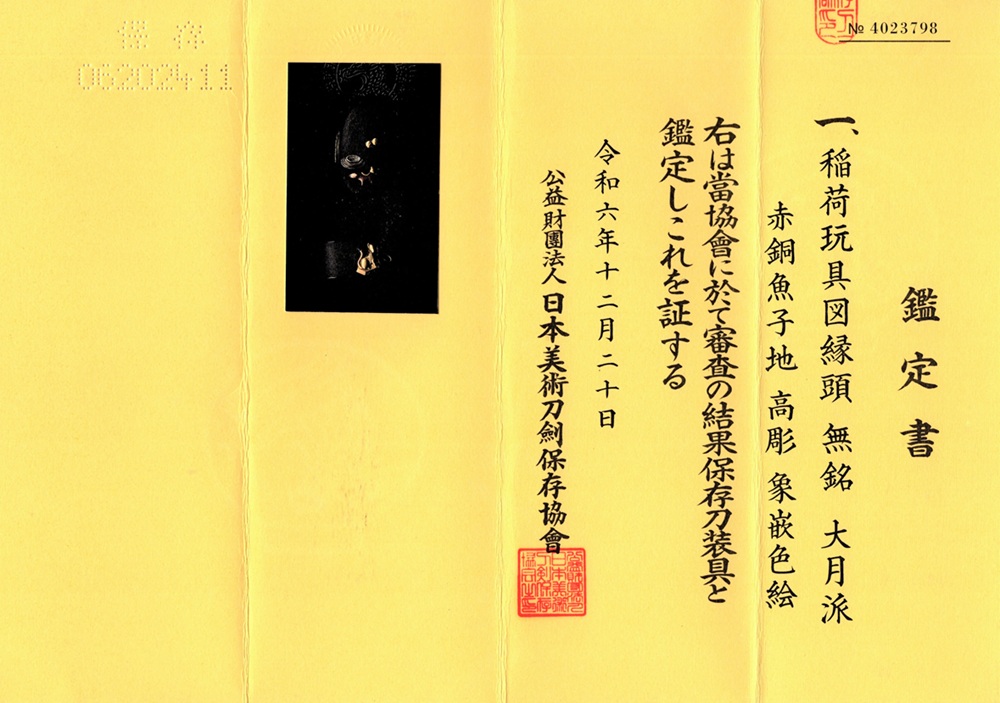 № 4023798
鑑定書
一、稲荷玩具図縁頭 無銘 大月派
赤銅魚子地 高彫 象嵌色絵
右は當協會に於て審査の結果保存刀装具と
鑑定しこれを証する
令和六年十二月二十日
公益財團法人 日本美術刀劍保存協會
保存
06202411